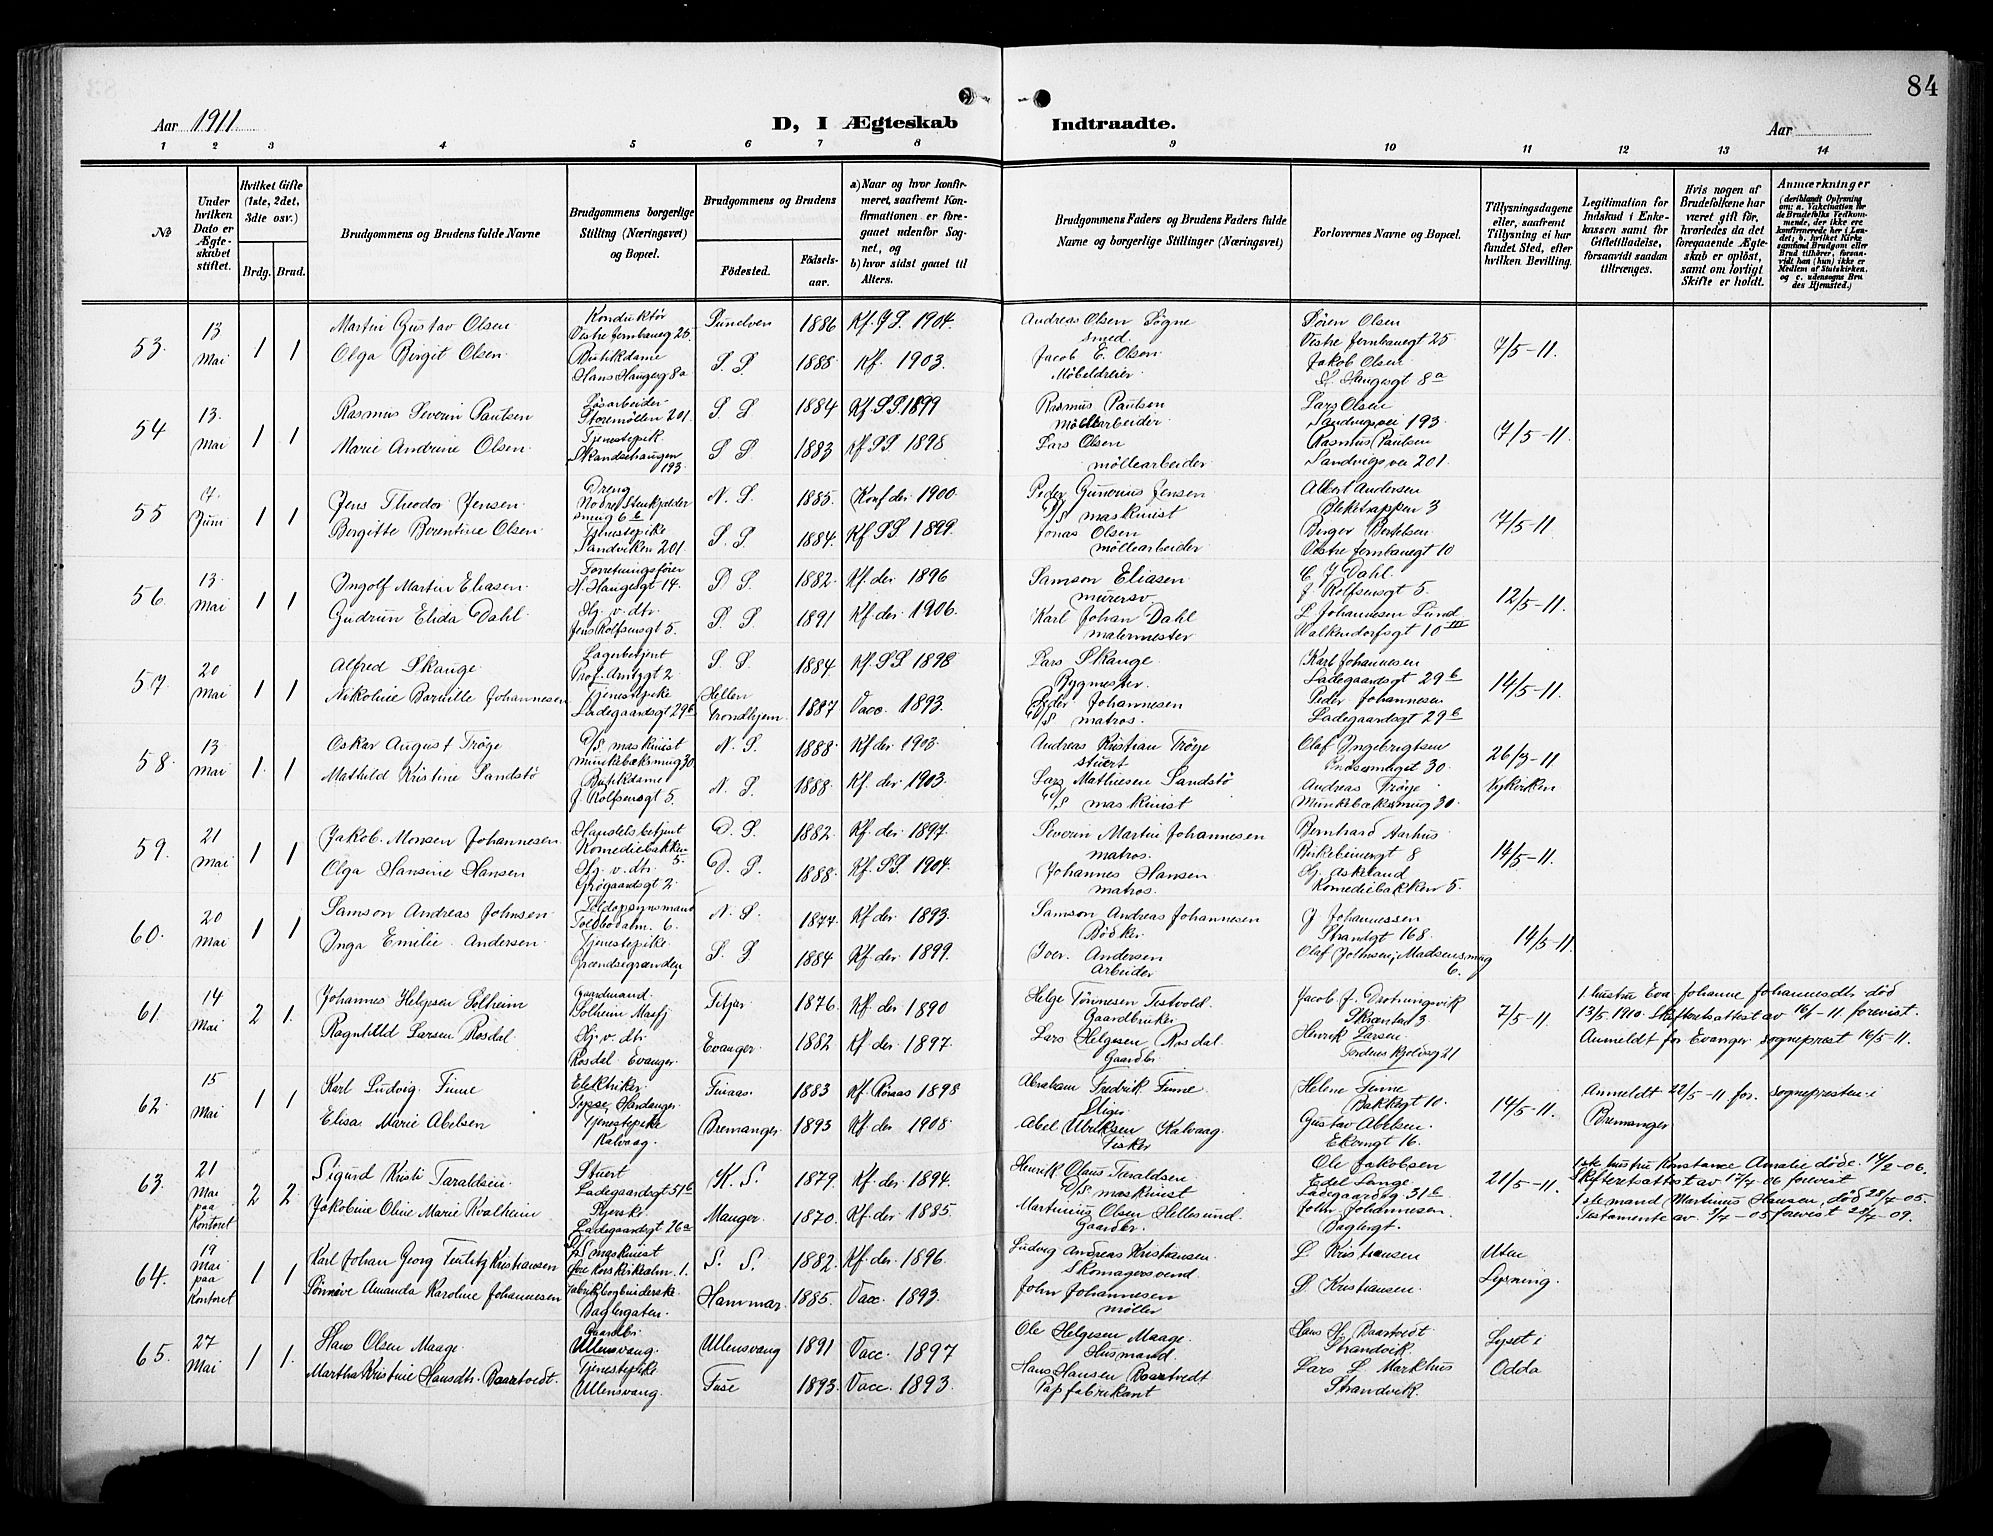 84
Aar 1911
D, I Ægteskab Indtraadte.
Aar
1 2 3 4 5 6 7 8 9 10 11 12 13 14
No
Under hvilken Dato er Ægteskabet stiftet.
Hvilket Gifte (1ste, 2det, 3die osv.)
Brdg. Brud.
Brudgommens og Brudens fulde Navne
Brudgommens borgerlige Stilling (Næringsvei) og Bopæl.
Brudgommens og Brudens
Fødested.
Fødselsaar.
a) Naar og hvor konfirmeret, saafremt Konfirmationen er foregaaet udenfor Sognet, og
b) hvor sidst gaaet til Alters.
Brudgommens Faders og Brudens Faders fulde Navne og borgerlige Stillinger (Næringsvei)
Forlovernes Navne og Bopæl.
Tillysningsdagene eller, saafremt Tillysning ei har fundet Sted, efter hvilken Bevilling.
Legitimation for Indskud i Enkekassen samt for Giftetilladelse, forsaavidt saadan tiltrænges.
Hvis nogen af Brudefolkene har været gift før, hvorledes da det foregaaende Ægteskab er opløst, samt om lovligt Skifte er holdt.
Anmærkninger
(deriblandt Oplysning om: a. Vakcination for de Brudefolks Vedkommende, der ikke ere konfirmerede her i Landet; b. hvilket Kirkesamfund Brudgom eller Brud tilhører, forsaavidt han (hun) ikke er Medlem af Statskirken, og c. udensogns Brudes Hjemsted.)
53. 13 Mai 1 1
Martin Gustav Olsen Konduktør Vestre Jernbaneg 25 1886 1904. Andreas Olsen Søgne smed. Søren Olsen Vestre Jernbanegt 25 7/5-11.
Olga Birgit Olsen. Butikdame Hans Haugesg 8a S. S. 1888 Kf. 1903. Jacob E. Olsen. Møbeldreier Jakob Olsen H. Haugesgt 8a
54 13. Mai 1 1
Rasmus Severin Paulsen Løsarbeider Storemøllen 201. S S 1884 Kf SS 1899 Rasmus Paulsen møllearbeider Lars Olsen Sandvigsvei 193. 7/5-11.
Marie Andrine Olsen. Tjenestepik Skandsehaugen 193. S S 1883 Kf SS 1898 Lars Olsen møllearbeider Rasmus Paulsen Sandvigsvei 201.
55 7. Juni 1 1
Jens Theodor Jensen Dreng smug 6b N. S. 1885. Konf der 1900. Peder Gunerius Jensen D/S maskinist Albert Andersen Bleketrappen 3 7/5-11.
Bergitte Berentine Olsen Tjenestepike Sandviken 201. S. S. 1884. Kf SS 1899. Jonas Olsen møllearbeider Berger Bertelsen Vestre Jernbanegt 10
56. 13. Mai 1 1
Ingolf Martin Eliasen Forretningsfører H. Haugesgt 14. 1882. Kf. der 1896 Samson Eliasen murersv. C J Dahl. J. Rolfsensgt 5. 12/5-11.
Gudrun Elida Dahl. Hj. v. dtr. Jens Rolfsensgt 5. 1891 Kf. der 1906. Karl Johan Dahl malermester L Johannesen Lund Walkendorfsgt 10 III
57. 20 Mai 1 1
Alfred Skauge. Lagerbetjent Prof. 2 S. S. 1884. Kf. SS 1898 Lars Skauge Bygmester. Karl Johannesen Ladegaardsgt 29b 14/5-11.
Nikoline Johannesen Tjenestepike Ladegaardsgt 29b Trondhjem. 1887 Vacc. 1893. Peder Johannesen D/S matros. Peder Johannesen Ladegaardsgt 29b
58. 13 Mai 1. 1
Oskar August Trøye D/S maskinist Munkebæksmug 30 N. S. 1888 Kf der 1903. Andreas Kristian Trøye stuert Olaf Ingebrigtsen 30. 26/3-11
Mathild Kristine Sandstø Butikdame J. Rolfsensgt 5. N. S. 1888. Kf. der 1903. Lars Mathiesen Sandstø D/S maskinist Andreas Trøye Munkebæksmug 30. Nykirken
59. 21 Mai 1 1
Jakob. Monsen Johannesen. Handelsbetjent Komediebakken 5. D. S. 1882. Kf. der 1897. Severin Martin Johannesen matros. Bernhard Aarhus Birkebeinergt 8 14/5-11.
Olga Hansine Hansen Hj. v. dtr. Grøgaardsgt 2. D. S. 1888. Kf. SS 1904. Johannes Hansen matros. Askeland Komediebakken 5.
60. 20 Mai 1 1
Samson Andreas Johnsen Toldopsynsmand Toldbodalm. 6. N. S. 1874. Kf. der 1893. Samson Andreas Johannesen Bødker. J Johannessen Strandgt 168. 14/5-11.
Inga Emilie. Andersen. Tjenestepike S. S 1884 Kf. der 1899. Iver. Andersen Arbeider Olaf Johnsen, Madsensmug 6.
61. 14 Mai 2 1.
Johannes Helgesen Solheim Gaardmand. Solheim Masfj Fitjar 1876. Kf. der 1890 Helge Tønnesen Gaardbruker. Jacob J. Drotningsvik 3 7/5-11. 1. hustru Eva Johanne Johannesdtr. død
Ragnhild Larsen Rosdal. Hj. v. dtr. Rosdal. Evanger. Evanger. 1882 Kf. der 1897. Lars Helgesen Rosdal Gaardbr. Henrik Larsen 21 13/5 1910. Skifteretsattest av 16/1-11. forevist.
Anmeldt for Evanger sogneprest 16/5-11.
62. 15 Mai 1 1
Karl Ludvig. Finne Elektriker. Tysse, Hardanger 1883 Kf. Røraas 1898 Abraham Fredrik Finne. Helene Finne Bakkegt 10. 14/5-11. Anmeldt 22/5-11 for. sognepresten i
Elisa. Marie Abelsen Tjenestepike Kalvaag. Bremanger. 1893 Kf. der 1908. Abel Ulriksen Kalvaag. Fisker Gustav Abelsen. Ekrengt 16. Bremanger
63. 21 Mai paa Kontoret 2 2.
Sigurd Kristi Taraldsen. Stuert Ladegaardsgt 51b K. S. 1879. Kf. der 1894. Henrik Olaus Taraldsen. D/S maskinist Ole Jakobsen Edel Lange Ladegaardsg 31b 21/5-11. 1ste hustru Konstance Amalie døde. 14/2-06.
Skifteretsattest av 17/4 06 forevist
Jakobine Oline Marie Kvalheim Ladegaardsgt 26a Manger. 1870. Kf. der 1885. Martinius Olsen Hellesund. Gaardbr. John Johannesen. Baglergt. 1ste mand Martinus Hansen, død 28/4-05.
Testamente av 3/4-05 forevist 23/4-09.
64. 19 Mai paa Kontoret 1 1
Karl Johan Georg Kristiansen D/S maskinist Øvre Korskirkealm. 1. S. S. 1882. Kf. der 1896. Ludvig Andreas Kristiansen. Skomagersvend. L. Kristiansen Uten
Sønneve Amanda Karoline Johannesen Baglergaten. Hammar. 1885. Vacc. 1893. John Johannesen møller S. Kristiansen. Lysning.
65. 27 Mai 1 1.
Hans Olsen Maage. Gaardbr. Ullensvang. Ullensvang 1891 Vacc. 1897 Ole Helgesen Maage. Husmand. Hans H. Baartvedt. Strandvik. Lyset i
Martha Kristine Hansdtr. Baartvedt. Tjenestepike Ullensvang. Fuse 1893. Vacc. 1893. Hans Hansen Baartvedt Papfabrikant Lars L. Markhus Strandvik. Odda